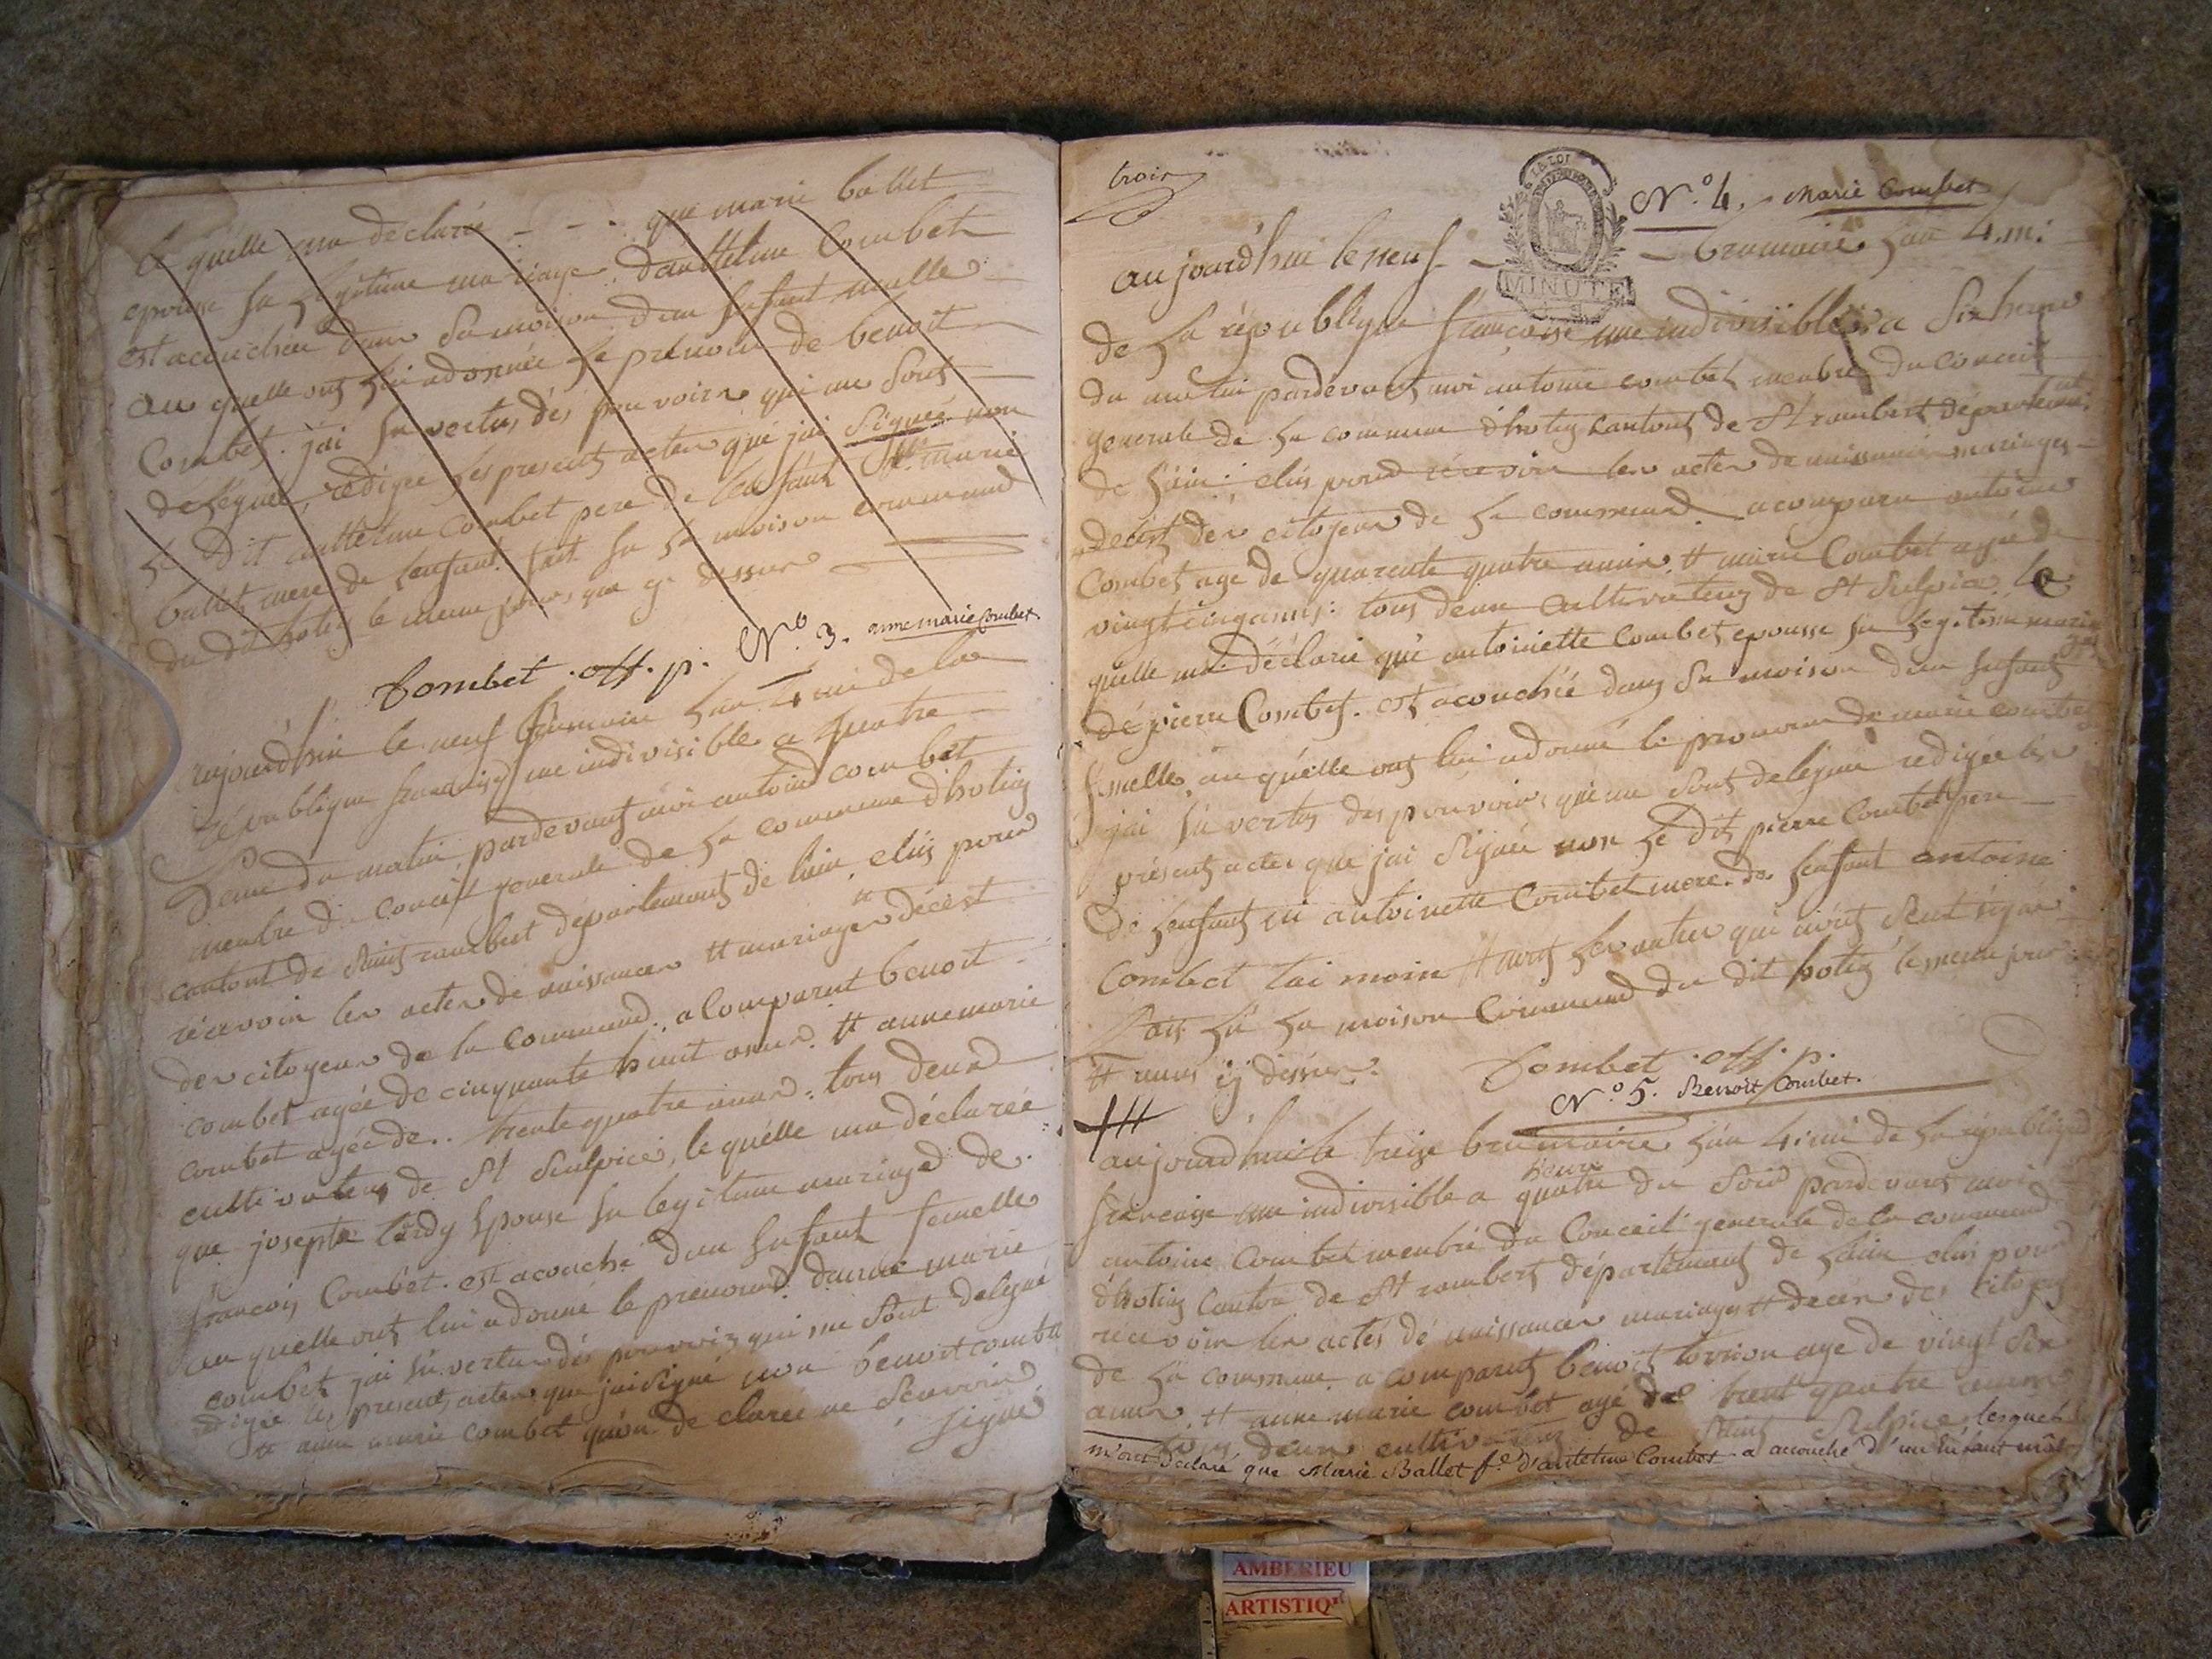 le quélle ma declarée - - . que marie ballet
epouse en legitime mariage d'anttelme Combet
est acouchée dans sa maison d'un enfant malle
au quelle ont lui adonnée le prénom de benoit
Combet. j'ai en vertus dés pouvoirs qui me sont
deléguée, rédigée les presents actes qué jai signée non
le dit anttelme Combet pere de l'enfant ni marie
ballet mere de lenfant. fait en la maison commune
du dit hotis le meme jours que cy dessus
Combet .off. p. N.º 3. anne marie Combet.
aujourdhui le neuf brumaire l'an 4 mi de la
république française une indivisible a quatre
heure du matin pardevant moi antoine combet
membre du conceil generale de la commune d'hotis
cantont de Saint rambert départements de lain, elus pour
récevoir les actes de naissances et mariages décést
des citoyens de la commune. a comparut benoit
combet agée de cinquante huit anns. et anne marie
combet agée de .. trente quatre anns. tous deux
cultivateurs de St Sulpice, le quélle ma déclarée
que josepte lardy epouse en legitime mariage de.
françois Combet. est acouché d'un enfant femelle
au quelle ont lui a donné le prenoms d'anne marie
combet jai en vertus dés pouvoirs qui me sont delegué
rédigée les presents actes que jai signé non benoit combet
et anne marie combet qu'on declarée ne Scavoir
signé
trois
N.º 4. Marie Combet
aujourd'hui le neuf - - brumaire l'an 4.mi
LA LOI
MINUTE
de la républlique françoise une indivisible a Six heure
du matin pardévant moi antoine combet membre du conceil
generale de la commune d'hotis cantont de St rambert départements
de lain: elus pour récevoir les actes de naissances mariages
decést des citoyens de la commune acomparu antoine
Combet agé de quarente quatre anns. et marie Combet agée de
vingt cinq anns: tous deux cultivateurs de St Sulpice. le
quélle ma déclarée qué antoinette Combet epousse en legitime mariage
dé pierre Combet. est acouchée dans sa maison d'un enfant
femelle au quélle ont lui adonné le prenoms de marie combet
jai en vertus des pouvoirs qui me sont deleguée redigée les
présents actes que jai Signée non le dit pierre Combet pere
de lenfant ni antoinette Combet mere de lenfant antoine
Combet tai moin et avec les autres qui n'ont Seut signé
fait en la maison commune du dit hotis le meme jour
et anns cy dessus. Combet .off. p.
N.º 5. Benoit Combet.
aujourd'hui le treize brumaire l'an 4.mi de la république
francaise une indivisible a quatre heure du Soir pardevant moi
antoine Combet membre du Conceil generale de la commune
d'hotis canton de St rambert départements de lain elus pour
récevoir les actés dé naissances mariages et décés des citoyens
de la commune a comparut benoit torrion age de vingt Six
anns. et anne marie combet agé de trent quatre anns
tous deux cultivateurs de Saint Sulpice lesquels
m'ont déclaré que Marie Ballet f.e d'antelme Combet a accouché d'un Enfant mâle
AMBERIEU
ARTISTIQ